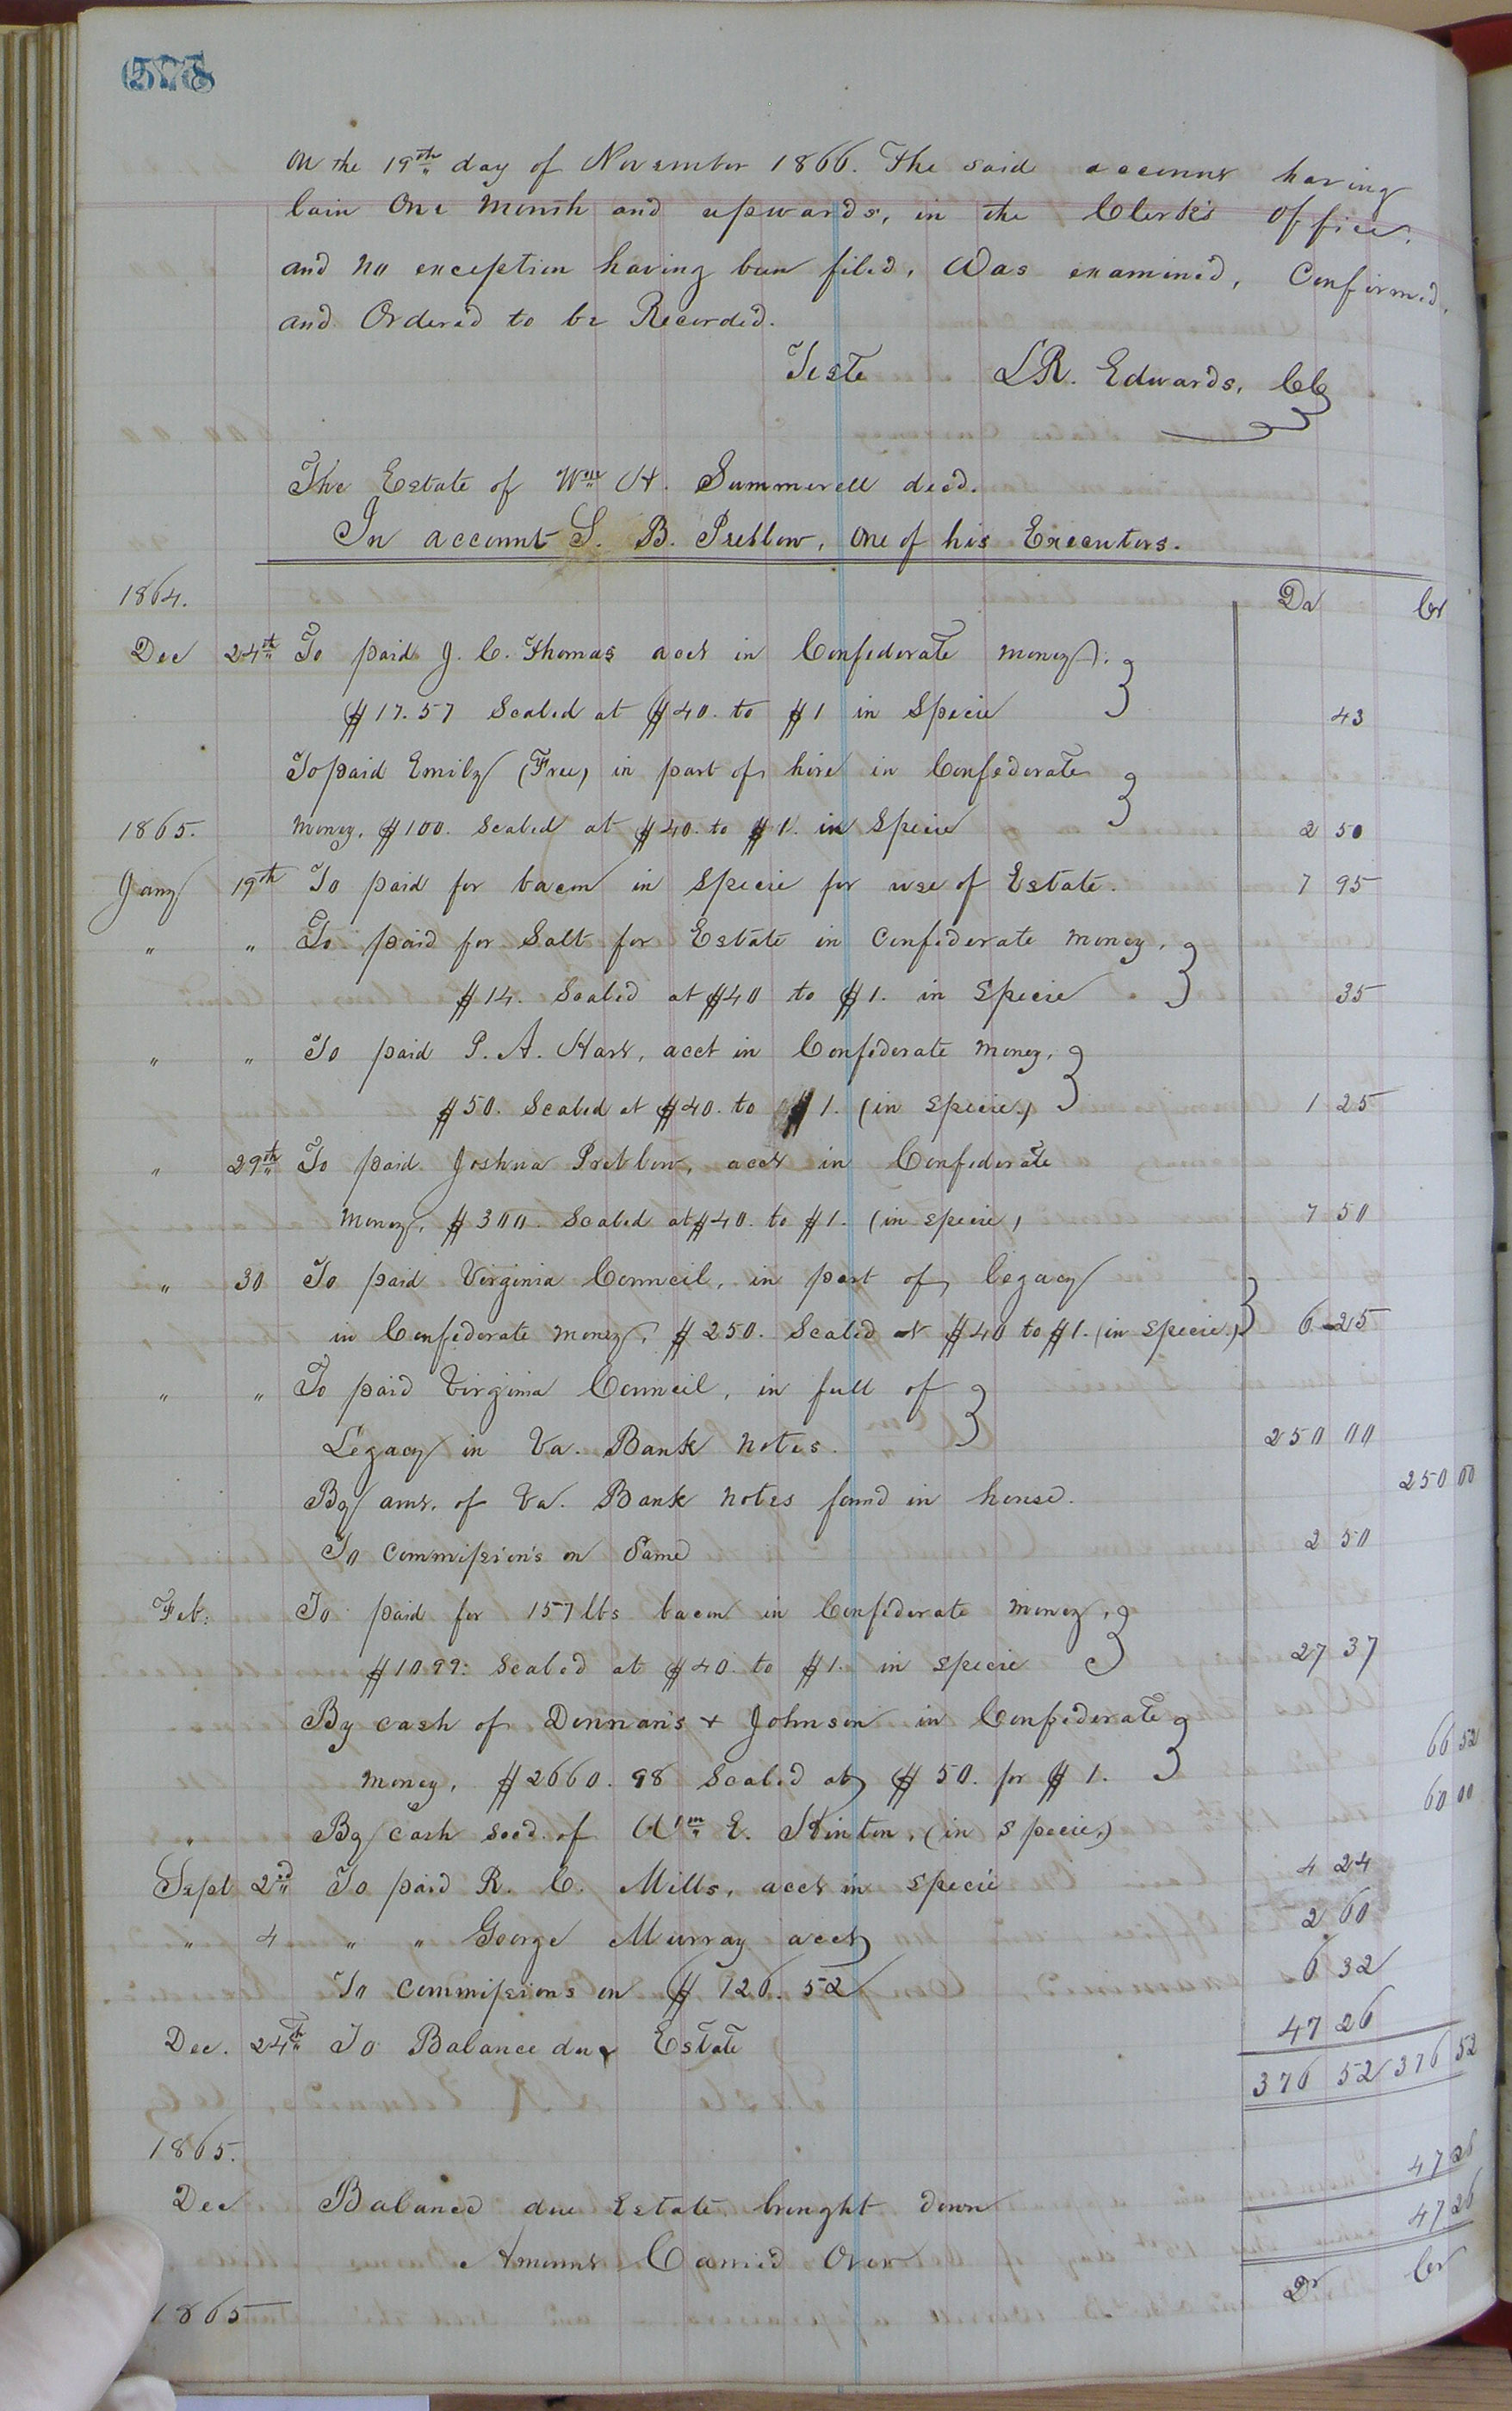 on the 19th day of November 1866. The said account having
lain One Month and upwards, in the Clerk's Office,
and no exception having been filed, Was examined, Confirmed,
and Ordered to be Recorded.
Teste L.R. Edwards, CC
The Estate of Wm H. Summerell decd.
In account S. B. Pretlow, One of his Executors.
1864. Dr Cr
Dec 24th To paid J. C. Thomas acct in Confederate money,
$17.57 Scaled at $40. to $1 in Specie 43
To paid Emily (Free) in part of hire in Confederate
1865. money, $100. Scaled at $40. to $1. in Specie 2 50
Jany 19th To paid for bacon in Specie for use of Estate. 7 95
" " To paid for Salt for Estate in Confederate money,
$14. Scaled at $40 to $1. in Specie 35
" " To paid P. A. Hart, acct in Confederate money,
$50. Scaled at $40. to $1. (in Specie.) 1 25
" 29th To paid Joshua Pretlow, acct in Confederate
money, $300. Scaled at $40. to $1. (in specie) 7 50
" 30 To paid Virginia Council, in part of Legacy
in Confederate money, $250. Scaled at $40 to $1. (in specie.) 6 25
" " To paid Virginia Council, in full of
Legacy in Va. Bank notes. 250 00
By amt. of Va. Bank notes found in house. 250 00
To commission's on Same 2 50
Feb: To paid for 157 lbs bacon in Confederate money,
$1099: Scaled at $40. to $1. in specie 27 37
By cash of Donnan's & Johnson in Confederate
money, $2660.98 Scaled at $50. for $1. 66 52
" By cash recd. of Wm E. Hinton, (in Specie,) 60 00
Sept 2nd To paid R. C. Mills, acct in specie 4 24
" 4 " " George Murray acct 2 60
To commissions on $126.52 6 32
Dec. 24th To Balance due Estate 47 26
376 52 376 52
1865.
Dec Balance due Estate brought down 47 26
Amount Carried Over 47 26
1865 Dr Cr